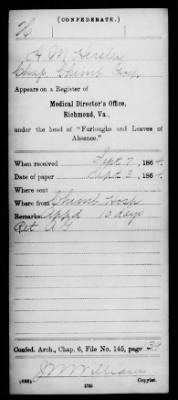 (CONFEDERATE.)
H
H M Hersley
Chimb Hosp
Appears on a Register of
Medical Director's Office,
Richmond, Va.,
under the head of "Furloughs and Leaves of
Absence."
When received Sept 7, 1864.
Date of paper Sept 3, 1864.
Where sent
Where from Chimb Hosp
Remarks: Appd 10 days
Ret
Confed. Arch., Chap. 6, File No. 145, page 39
Copyist.